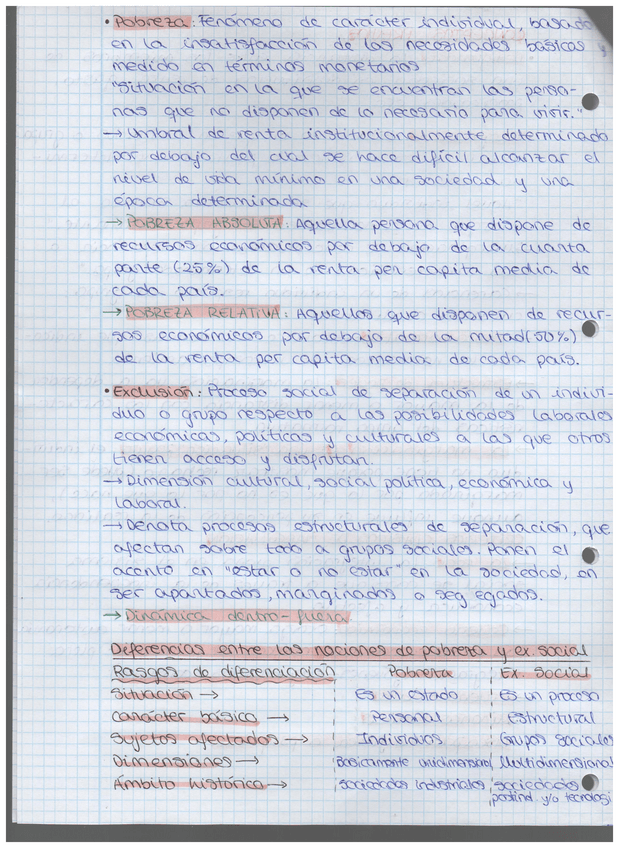 • Pobreza: Fenómeno de carácter individual, basado
en la insatisfacción de las necesidades básicas y
medido en términos monetarios
"Situación en la que se encuentran las perso-
nas que no disponen de lo necesario para vivir."
→ Umbral de renta institucionalmente determinado
por debajo del cual se hace difícil alcanzar el
nivel de vida mínimo en una sociedad y una
época determinada
→ POBREZA ABSOLUTA: Aquella persona que dispone de
recursos económicos por debajo de la cuarta
parte (25%) de la renta per capita media de
cada país.
→ POBREZA RELATIVA: Aquellos que disponen de recur-
sos económicos por debajo de la mitad (50%)
de la renta per capita media de cada país.
• Exclusión: Proceso social de separación de un indivi-
duo o grupo respecto a las posibilidades laborales
económicas, políticas y culturales a las que otros
tienen acceso y disfrutan.
→ Dimensión cultural, social política, económica y
laboral.
→ Denota procesos estructurales de separación, que
afectan sobre todo a grupos sociales. Ponen el
acento en "estar o no estar" en la sociedad, en
ser apartados, marginados o seg egados.
→ Dinámica dentro-fuera
Diferencias entre las nociones de pobreza y ex. social
Rasgos de diferenciación Pobreza Ex. Social
Situación → Es un estado Es un proceso
Carácter básico → Personal Estructural
Sujetos afectados → Individuos Grupos sociales
Dimensiones → Básicamente unidimensional Multidimensional
Ámbito histórico → Sociedades industriales sociedades
postind y/o tecnologi